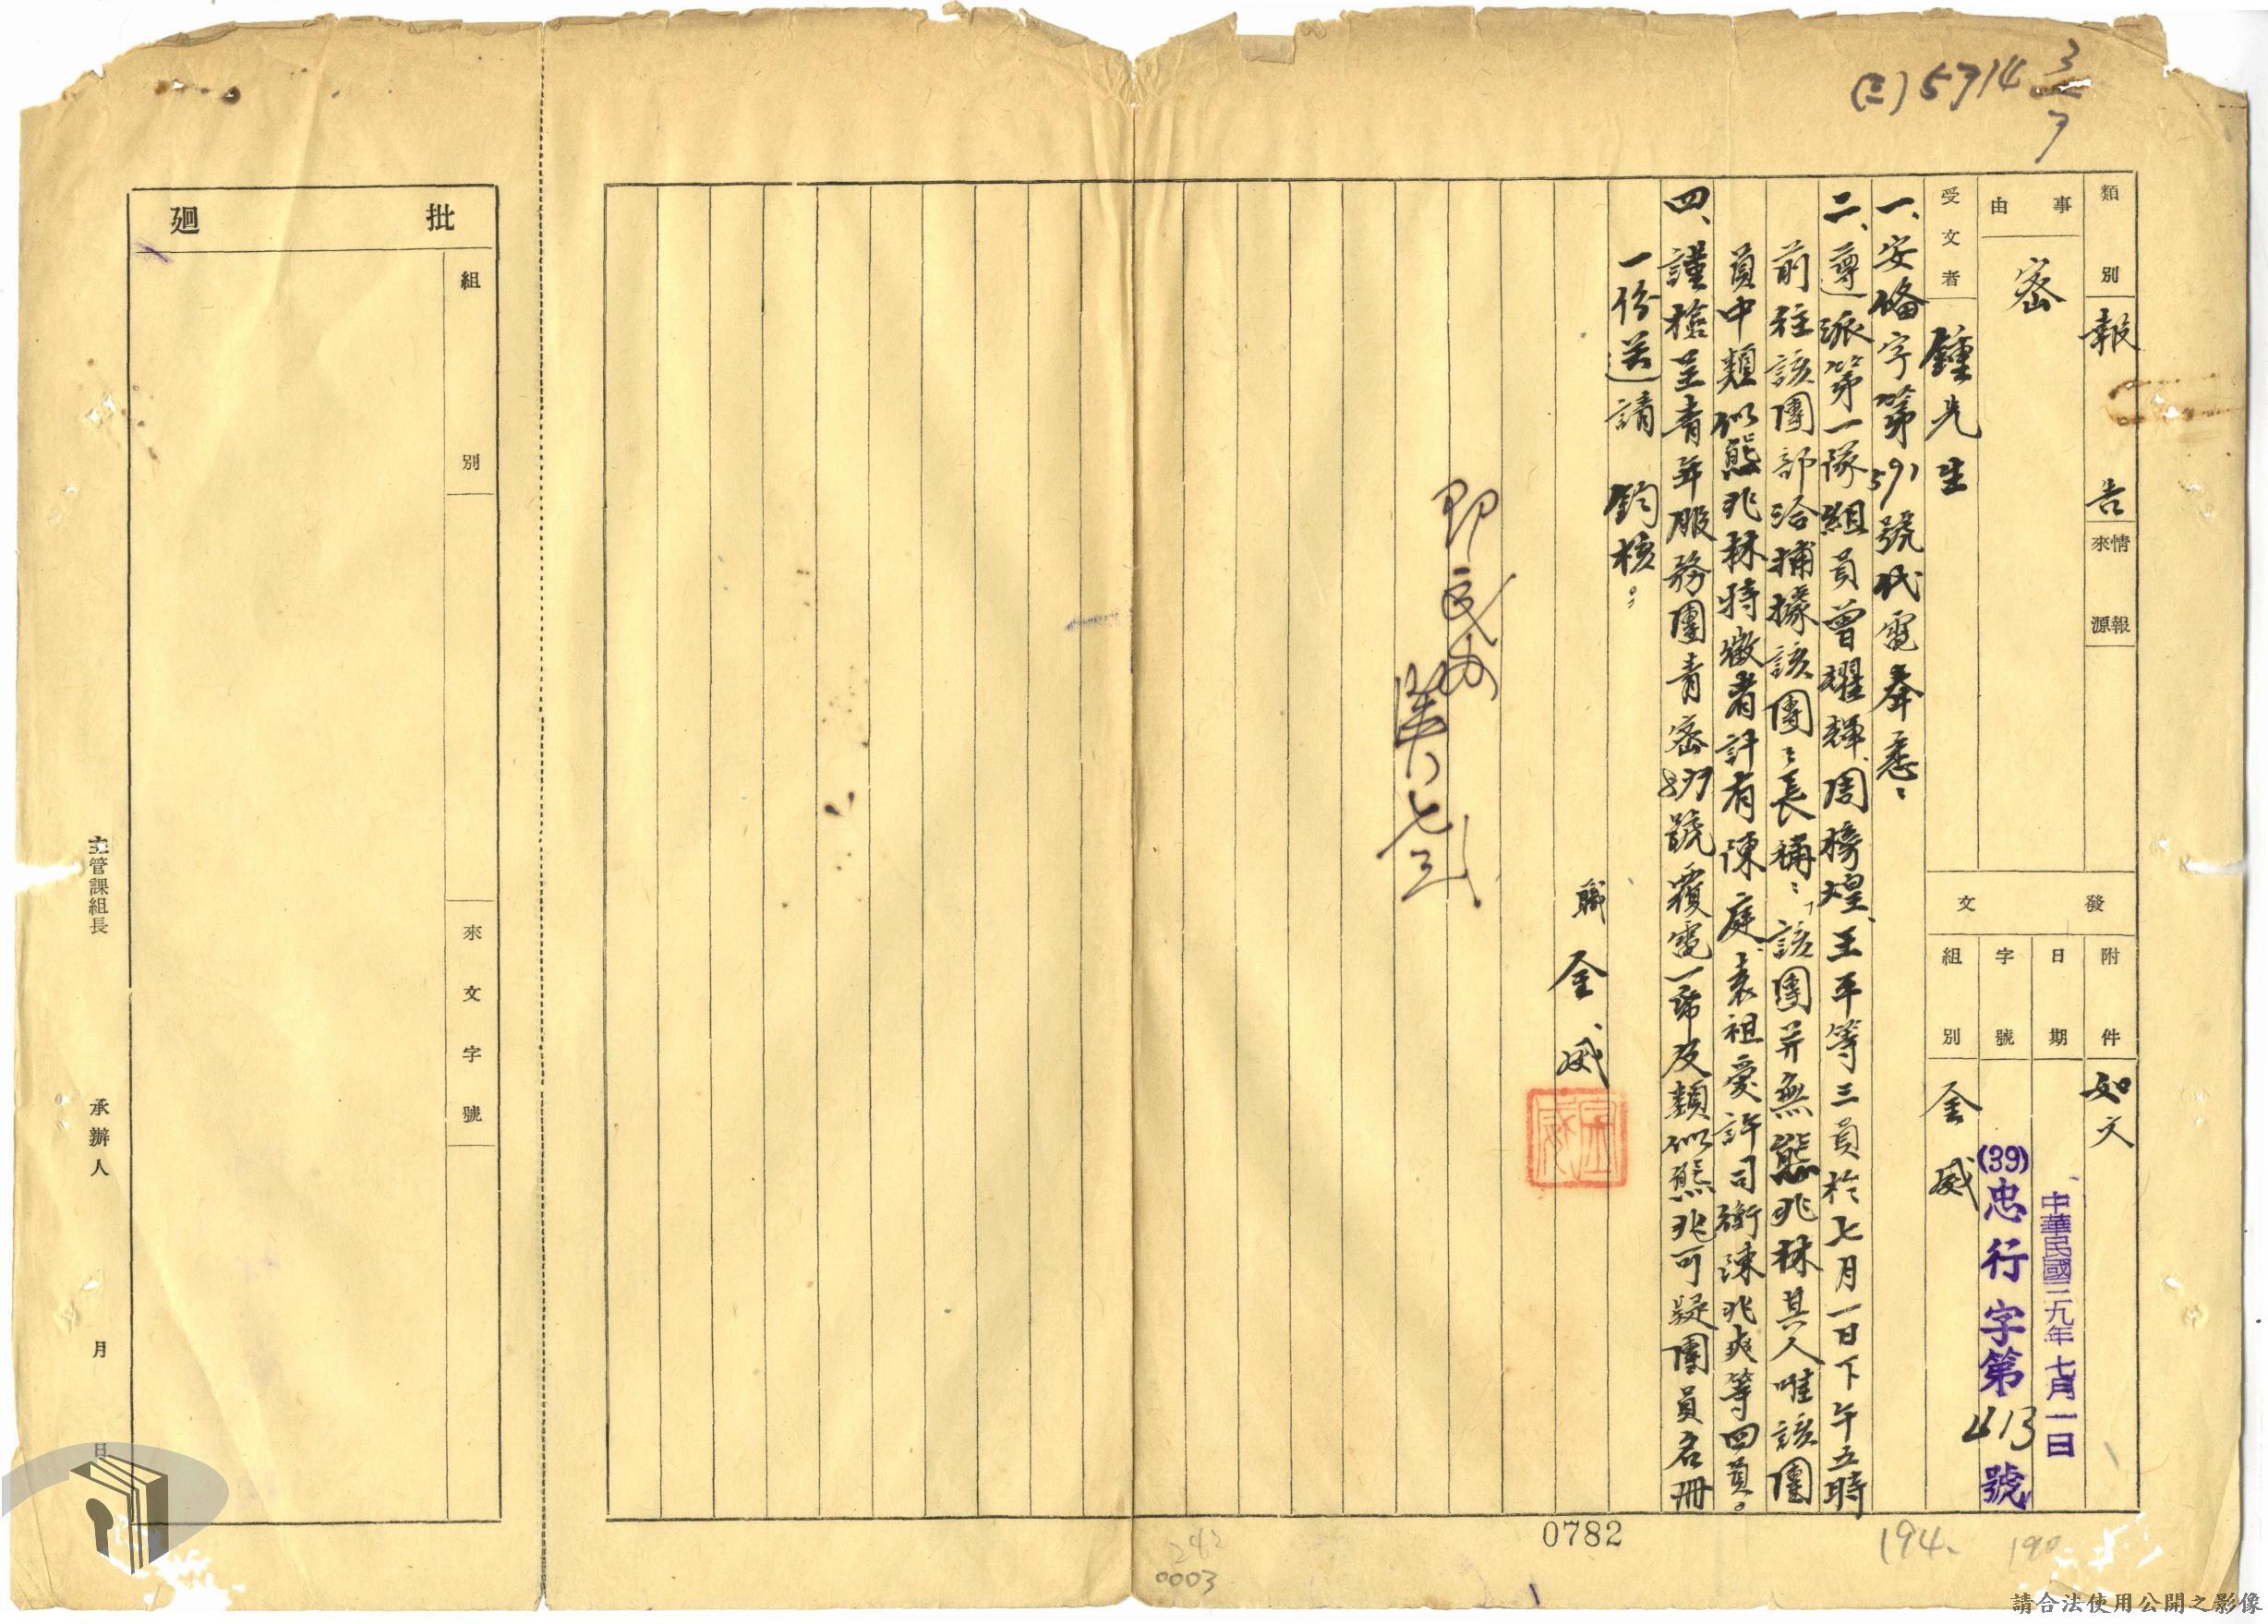 (三)5714 3/7
類別 報告
情報來源
事由 密
受文者 鍾先生
發文
附件 如文
日期 中華民國三九年七月一日
字號 (39)忠行字第413號
組別 金威
一、安俻字第591號代電奉悉：
二、遵派第一隊組員曾耀輝、周榜煌、王平等三員於七月一日下午五時
前往該團部洽捕據該團〻長稱：「該團并無熊兆林其人唯該團
員中類似熊兆林特徵者計有陳庭、袁祖愛、許司衡、陳兆爽等四員。
四、謹檢呈青年服務團青密897號覆電一帋及類似熊兆可疑團員名冊
一份送請 鈞核。
職 金威
七三
批廻
組別
來文字號
主管課組長
承辦人
月
日
0782
194.
190
242
0003
請合法使用公開之影像